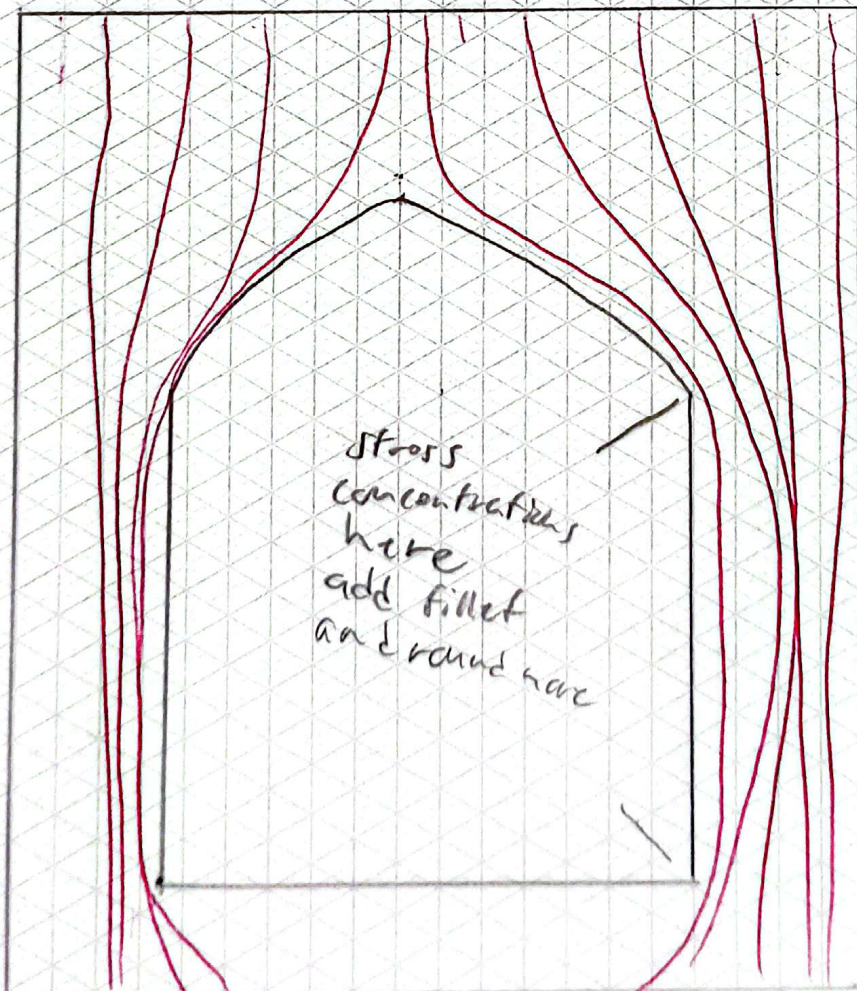 stress
concentrations
here
add fillet
and round here